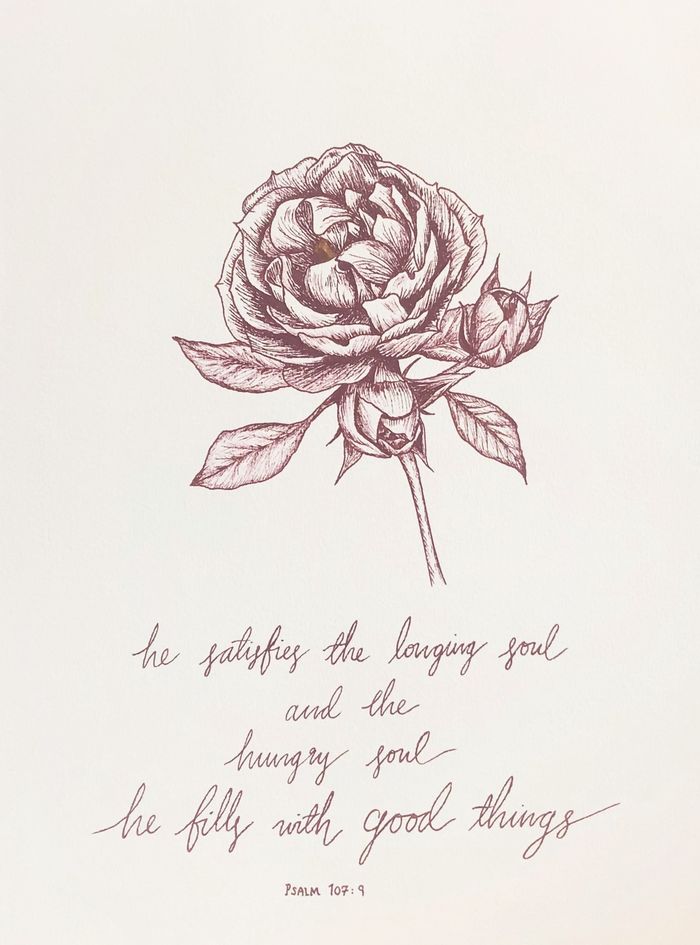 he satisfies the longing soul
and the
hungry soul
he fills with good things
PSALM 107:9